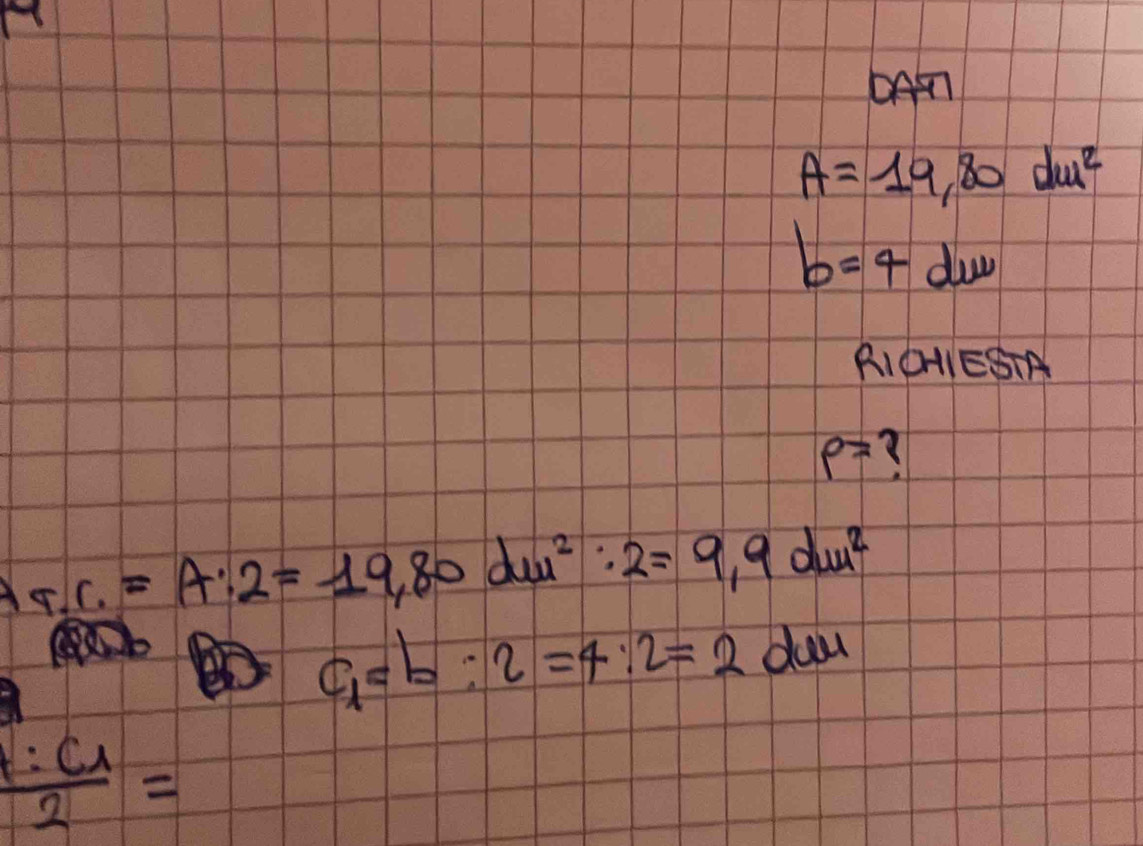 DATI
A = 19,80 dm²
b = 4 dm
RICHIESTA
P = ?
A T.r. = A : 2 = 19,80 dm² : 2 = 9,9 dm²
C₁ = b : 2 = 4 : 2 = 2 dm
: C₁
2 =